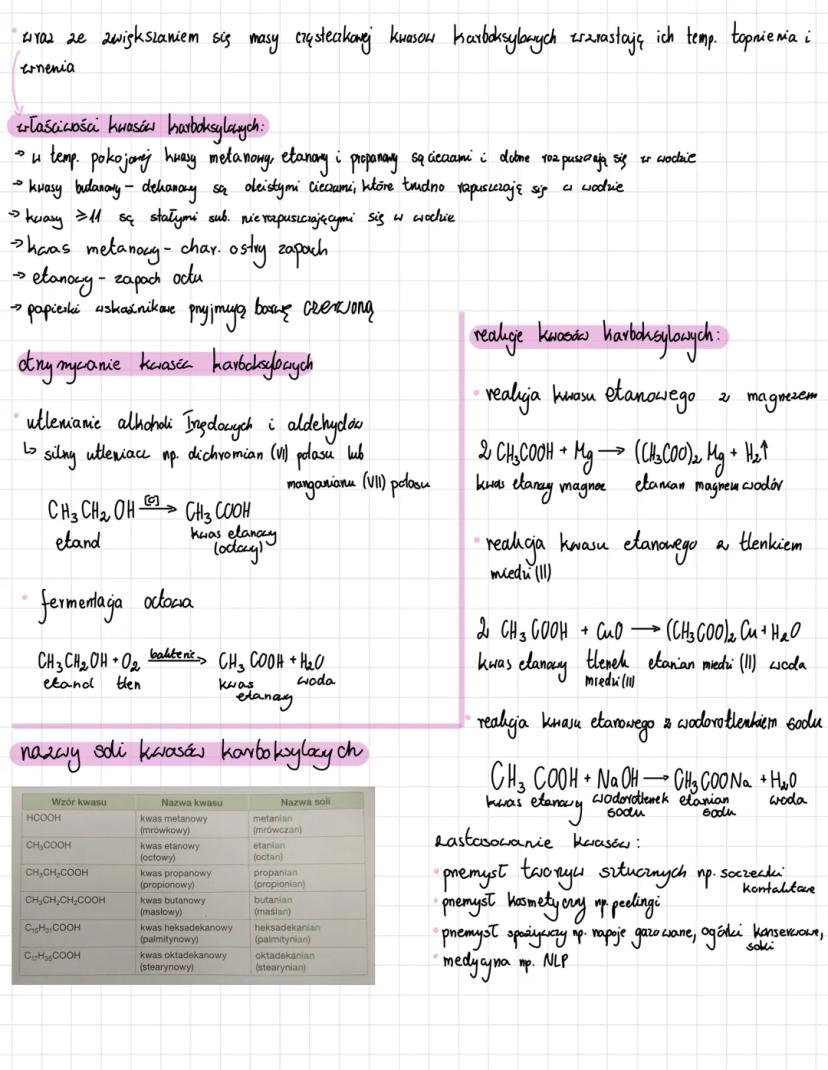 wraz ze zwiększaniem się masy cząsteczkowej kwasów karboksylowych wzrastają ich temp. topnienia i
wrzenia
właściwości kwasów karboksylowych:
→ w temp. pokojowej kwasy metanowy, etanowy i propanowy są cieczami i dobrze rozpuszczają się w wodzie
→ kwasy butanowy – dekanowy są oleistymi cieczami, które trudno rozpuszczają się w wodzie
→ kwasy ≥11 są stałymi sub. nierozpuszczającymi się w wodzie
→ kwas metanowy - char. ostry zapach
→ etanowy - zapach octu
→ papierki wskaźnikowe przyjmują barwę czerwoną
otrzymywanie kwasów karboksylowych
• utlenianie alkoholi Irzędowych i aldehydów
↳ silny utleniacz np. dichromian (VI) potasu lub
manganianu (VII) potasu
CH₃CH₂OH —[O]→ CH₃COOH
etanol kwas etanowy
(octowy)
• fermentacja octowa
CH₃CH₂OH + O₂ —bakterie→ CH₃COOH + H₂O
etanol tlen kwas woda
etanowy
nazwy soli kwasów karboksylowych
Wzór kwasu Nazwa kwasu Nazwa soli
HCOOH kwas metanowy metanian
(mrówkowy) (mrówczan)
CH₃COOH kwas etanowy etanian
(octowy) (octan)
CH₃CH₂COOH kwas propanowy propanian
(propionowy) (propionian)
CH₃CH₂CH₂COOH kwas butanowy butanian
(masłowy) (maślan)
C₁₅H₃₁COOH kwas heksadekanowy heksadekanian
(palmitynowy) (palmitynian)
C₁₇H₃₅COOH kwas oktadekanowy oktadekanian
(stearynowy) (stearynian)
reakcje kwasów karboksylowych:
• reakcja kwasu etanowego z magnezem
2 CH₃COOH + Mg → (CH₃COO)₂Mg + H₂↑
kwas etanowy magnez etanian magnezu wodór
• reakcja kwasu etanowego z tlenkiem
miedzi (II)
2 CH₃COOH + CuO → (CH₃COO)₂Cu + H₂O
kwas etanowy tlenek etanian miedzi (II) woda
miedzi (II)
• reakcja kwasu etanowego z wodorotlenkiem sodu
CH₃COOH + NaOH → CH₃COONa + H₂O
kwas etanowy wodorotlenek etanian woda
sodu sodu
zastosowanie kwasów:
• przemysł tworzyw sztucznych np. soczewki
kontaktowe
• przemysł kosmetyczny np. peelingi
• przemysł spożywczy np. napoje gazowane, ogórki konserwowe,
soki
• medycyna np. NLP